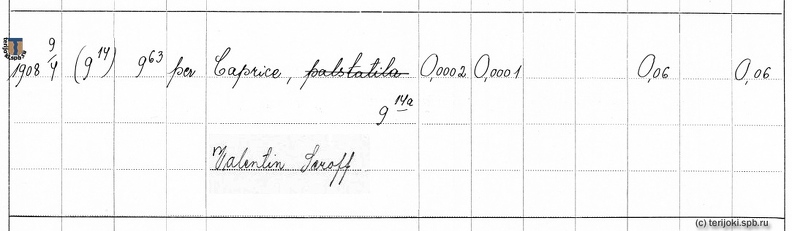 1908 9/4 (9¹⁴) 9⁶³ per Caprice, palstatila 0,0002 0,0001 0,06 0,06
9¹⁴ᵃ
Valentin Seroff
(c) terijoki.spb.ru